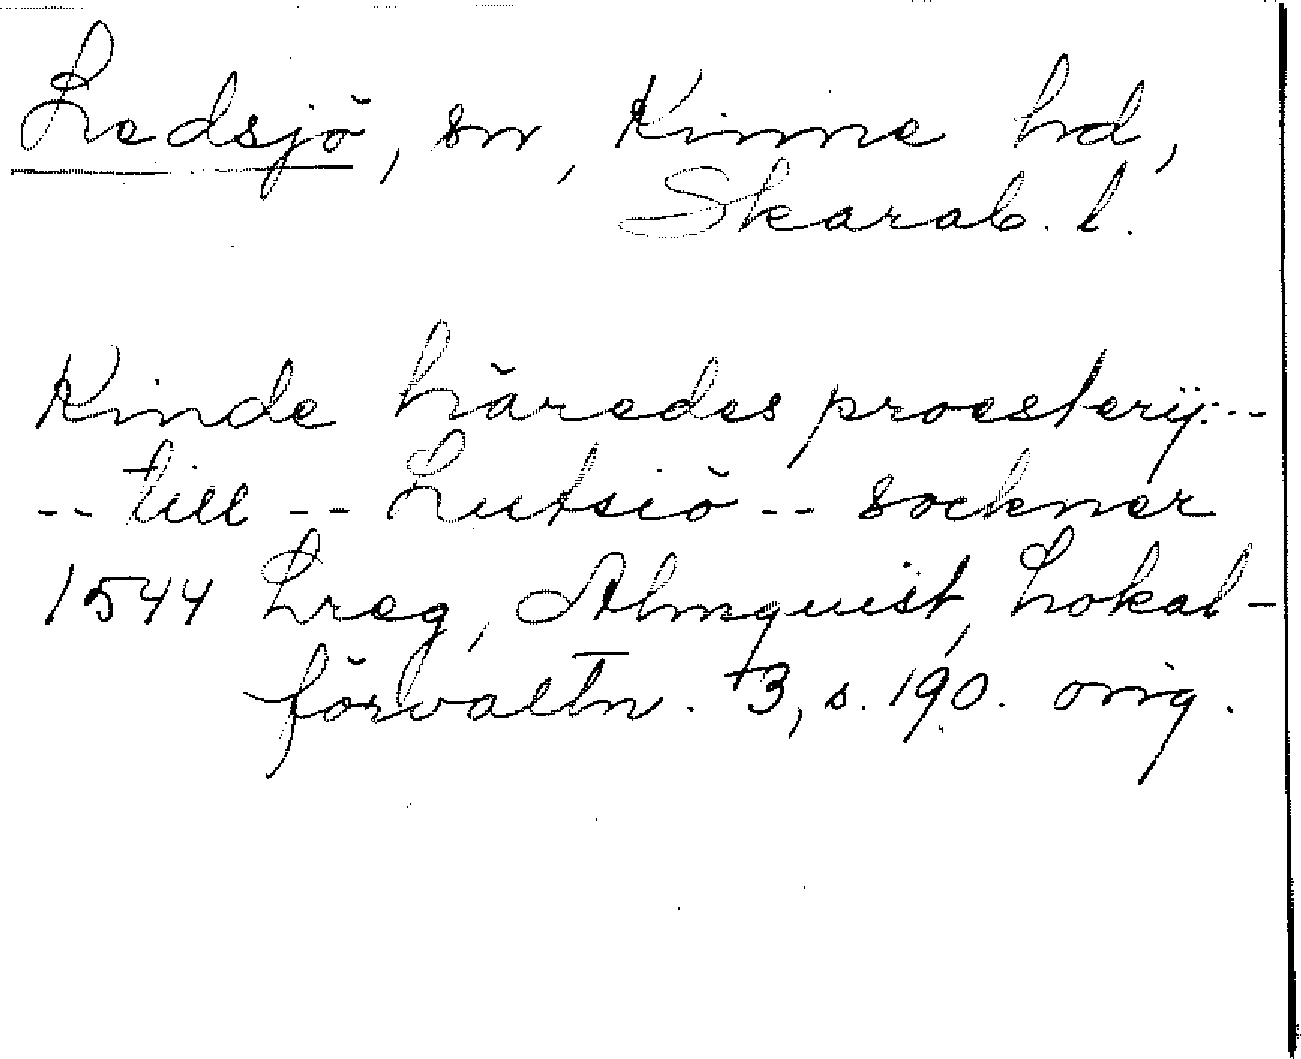 Ledsjö, sn, Kinne hd,
Skarab. l.
Kinde häredes proesterij:--
-- till -- Lutsiö -- sockner
1544 Lreg, Almquist, Lokal-
förvaltn. 3, s. 190. orig.